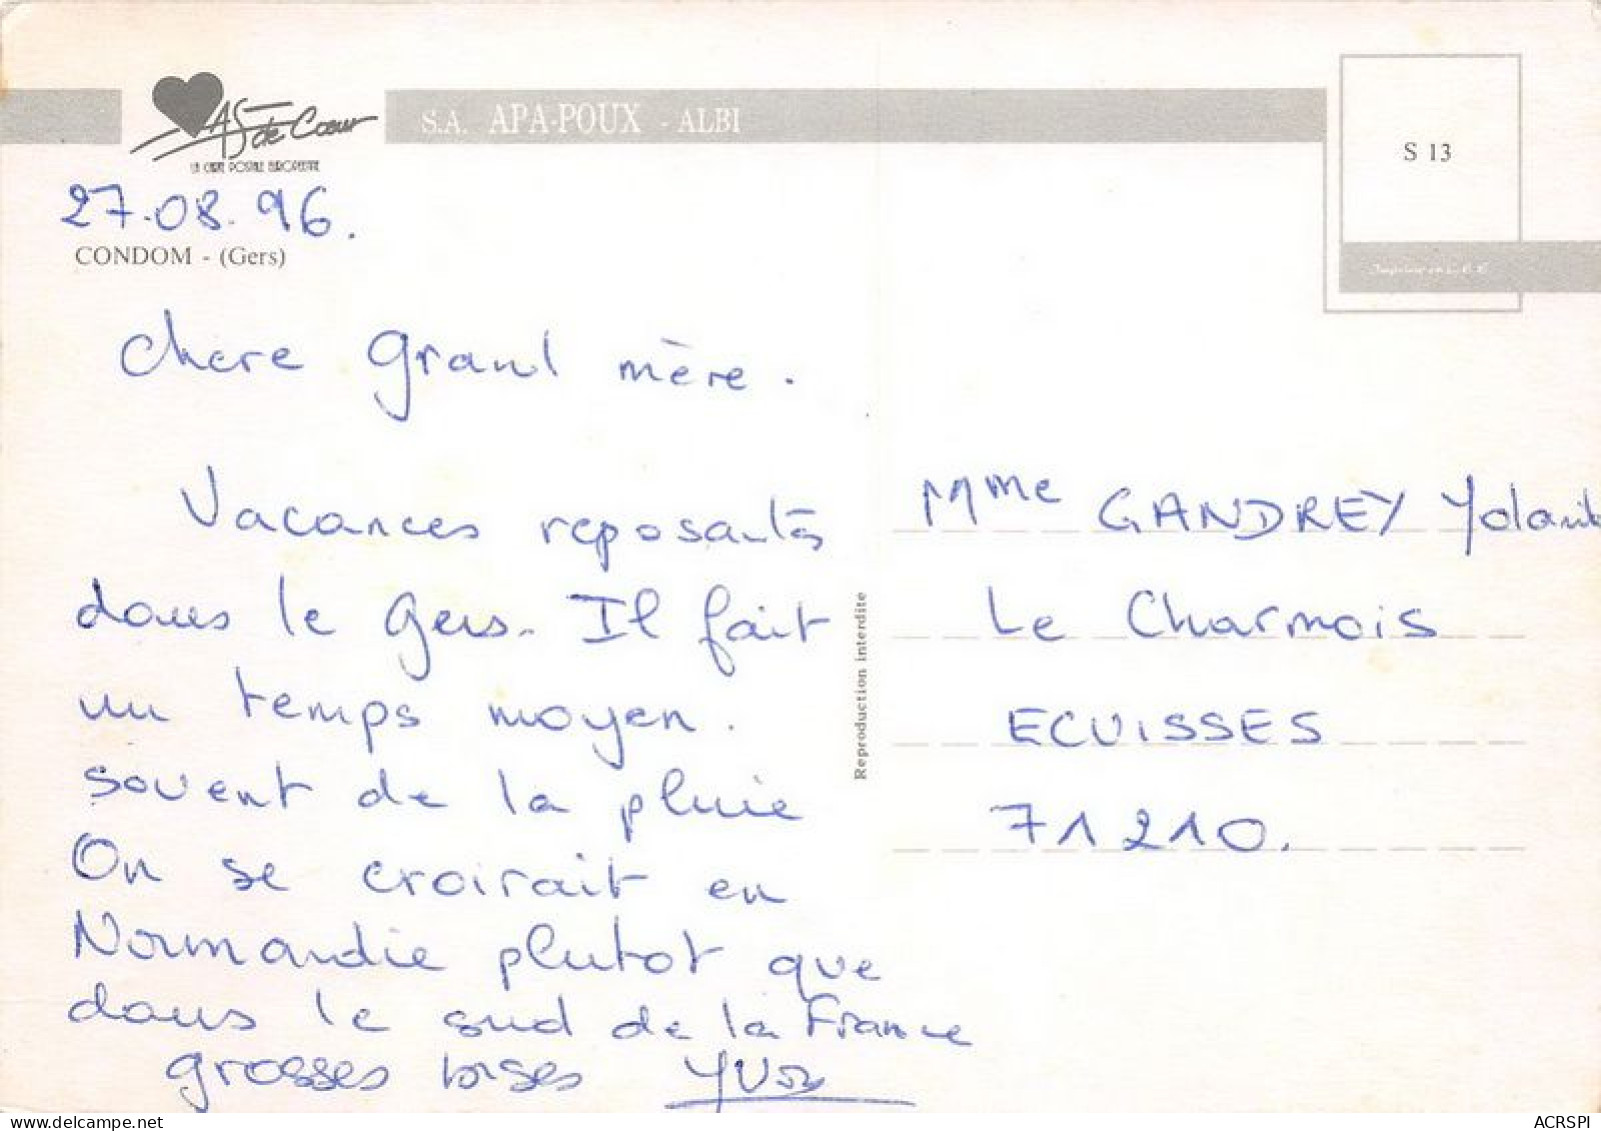 AS de Cœur
LA CARTE POSTALE EUROPEENNE
S.A. APA-POUX - ALBI
S 13
27.08.96.
CONDOM - (Gers)
Chere Grand mère.
Vacances reposantes
dans le Gers. Il fait
un temps moyen.
souvent de la pluie
On se croirait en
Normandie plutot que
dans le sud de la France
grosses bises
Reproduction interdite
Mme GANDREY
Le Charmois
ECUISSES
71210.
ACRSPI